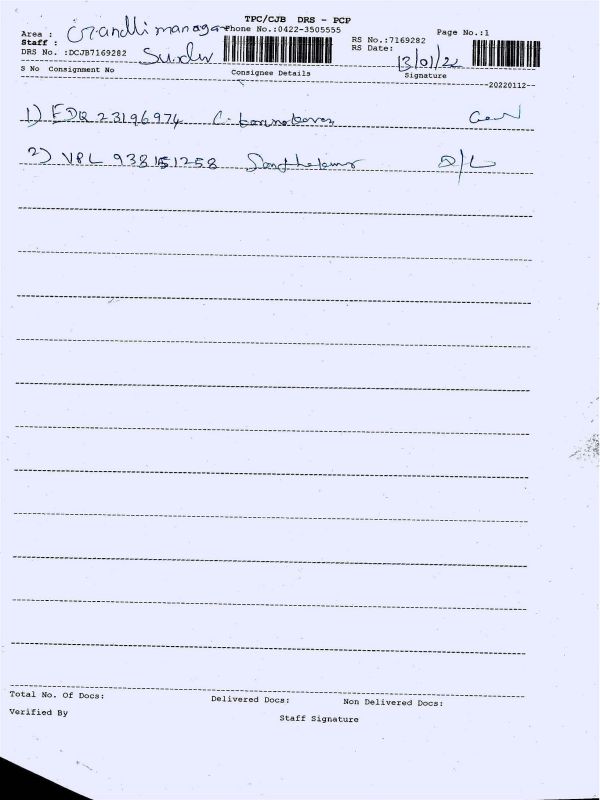 TPC/CJB DRS - PCP
Area : Gandhi managar Phone No.:0422-3505555 Page No.:1
Staff : RS No.:7169282
DRS No. :DCJB7169282 RS Date: 13/01/22
S No Consignment No Consignee Details Signature
--20220112--
1) EDQ 23196974
2) VPL 938151258 D/L
Total No. Of Docs: Delivered Docs: Non Delivered Docs:
Verified By Staff Signature